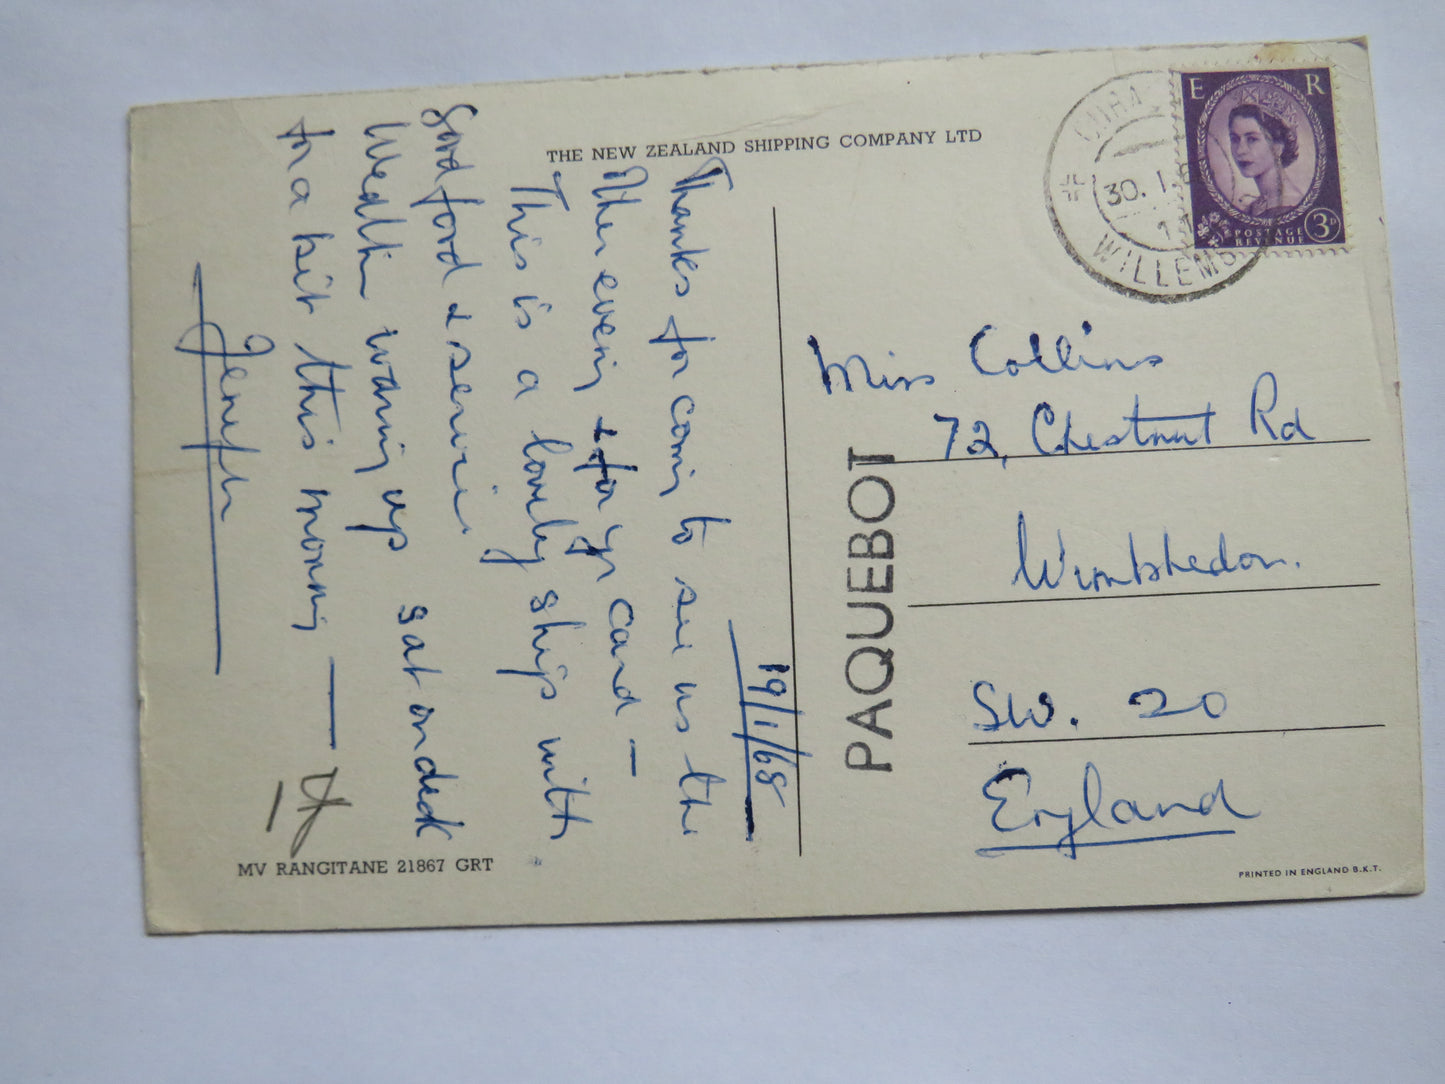 THE NEW ZEALAND SHIPPING COMPANY LTD
19/1/68
Thanks for coming to see us the
other evening & for yr card –
This is a lovely ship with
good food & service.
Weather warming up sat on deck
for a bit this morning —
Jennifer
MV RANGITANE 21867 GRT
30. 1. 6
WILLEMS
E R
POSTAGE
REVENUE
3D
PAQUEBOT
Miss Collins
72, Chestnut Rd
Wimbledon.
SW. 20
England
PRINTED IN ENGLAND B.K.T.